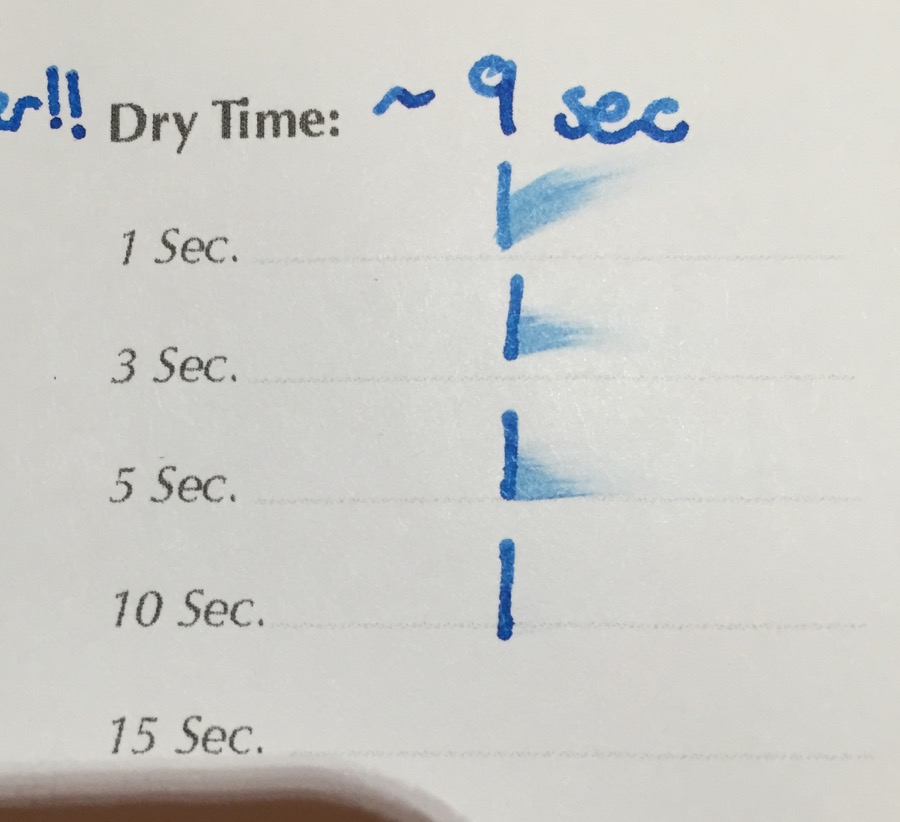 Dry Time: ~ 9 sec
1 Sec.
3 Sec.
5 Sec.
10 Sec.
15 Sec.